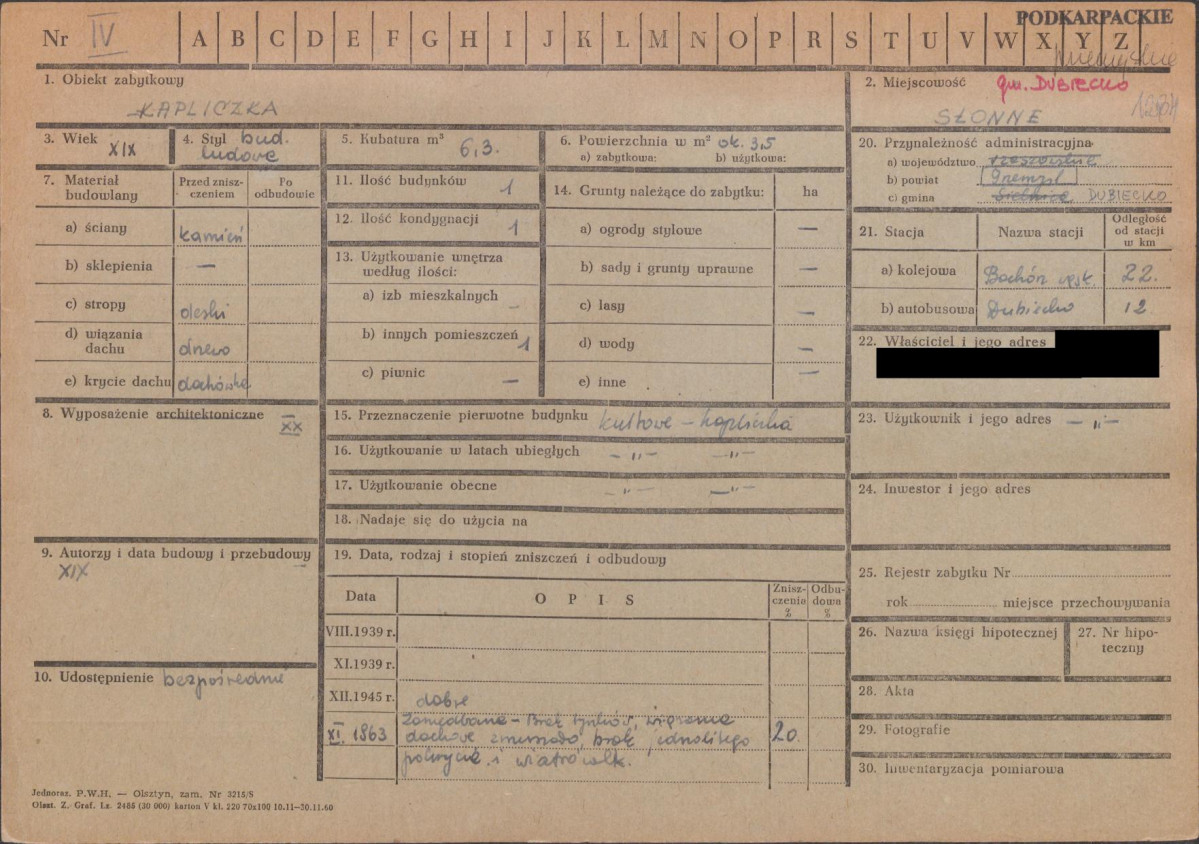 PODKARPACKIE
Nr IV A B C D E F G H I J K L M N O P R S T U V W X Y Z
przemyskie
1. Obiekt zabytkowy
KAPLICZKA
2. Miejscowość gm. DUBIECKO
SŁONNE
3. Wiek XIX
4. Styl bud. ludowe
5. Kubatura m³ 6,3.
6. Powierzchnia w m² ok. 3,5
a) zabytkowa: b) użytkowa:
7. Materiał budowlany
Przed zniszczeniem
Po odbudowie
a) ściany kamień
b) sklepienia —
c) stropy deski
d) wiązania dachu drewo
e) krycie dachu dachówka
8. Wyposażenie architektoniczne XX
9. Autorzy i data budowy i przebudowy
XIX
10. Udostępnienie bezpośrednie
11. Ilość budynków 1
12. Ilość kondygnacji 1
13. Użytkowanie wnętrza według ilości:
a) izb mieszkalnych –
b) innych pomieszczeń 1
c) piwnic —
14. Grunty należące do zabytku: ha
a) ogrody stylowe —
b) sady i grunty uprawne —
c) lasy —
d) wody —
e) inne —
15. Przeznaczenie pierwotne budynku kultowe – kapliczka
16. Użytkowanie w latach ubiegłych –„– –„–
17. Użytkowanie obecne –„– –„–
18. Nadaje się do użycia na
19. Data, rodzaj i stopień zniszczeń i odbudowy
Data OPIS Zniszczenia % Odbudowa %
VIII.1939 r.
XI.1939 r.
XII.1945 r. dobre
XI. 1863 Zaniedbane – Brak tynków, wiązanie
dachowe zmurszało, brak jednolitego 20.
pokrycia i wiatrówek.
20. Przynależność administracyjna
a) województwo rzeszowskie
b) powiat Przemyśl
c) gmina Sielnica DUBIECKO
21. Stacja Nazwa stacji Odległość od stacji w km
a) kolejowa Bachórz wąsk. 22.
b) autobusowa Dubiecko 12
22. Właściciel i jego adres
23. Użytkownik i jego adres –„–
24. Inwestor i jego adres
25. Rejestr zabytku Nr
rok miejsce przechowywania
26. Nazwa księgi hipotecznej
27. Nr hipoteczny
28. Akta
29. Fotografie
30. Inwentaryzacja pomiarowa
Jednoraz. P.W.H. — Olsztyn, zam. Nr 3215/S
Olszt. Z. Graf. Lz. 2485 (30 000) karton V kl. 220 70x100 10.11—30.11.60